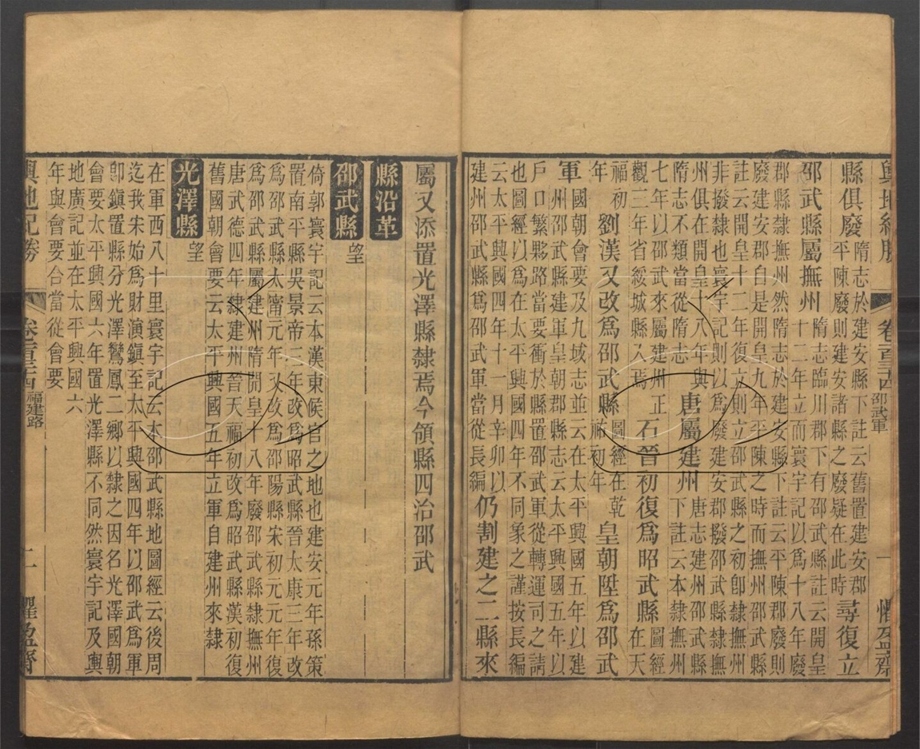 輿地紀勝
卷一百三十四
邵武軍
一
懼盈齋
縣俱廢
隋志於建安縣下註云舊置建安郡
平陳廢則建安諸縣之廢疑在此時
尋復立
邵武縣屬撫州
隋志臨川郡下有邵武縣註云開皇
十二年立而寰宇記以為十八年廢
郡縣隸撫州然隋志於建安縣下註云平陳郡廢則
廢建安郡自是開皇九年平陳之時而撫州邵武縣
註云開皇十二年復立則立邵武縣之初卽隸撫州
非廢隸也寰宇記則以為廢建安郡撥邵武縣隸撫
州俱在開皇十八年與
隋志不類當從隋志
唐屬建州
唐志建州邵武縣
下註云本隸撫州
七年以邵武來屬建州正
觀三年省綏城縣入焉
石晉初復爲昭武縣
圖經
在天
福初
年
劉漢又改爲邵武縣
圖經在乾
祐初年
皇朝陞爲邵武
軍
國朝會要及九域志並云在太平興國五年以建
州邵武縣建軍皇朝郡縣志云太平興國五年以
戶口繁夥路當要衝於縣置邵武軍從轉運司之請
也圖經以爲在太平興國四年不同象之謹按長編
云太平興國四年十一月辛卯以
建州邵武縣爲邵武軍當從長編
仍割建之二縣來
屬又添置光澤縣隸焉今領縣四治邵武
縣沿革
邵武縣
望
倚郭寰宇記云本漢東候官之地也建安元年孫策
置南平縣吳景帝三年改爲昭武縣晉太康三年改
爲邵武縣太甯元年又改爲邵陽縣宋初元元年復
爲邵武縣屬建州隋開皇十八年廢邵武縣隸撫州
唐武德四年隸建州晉天福初改爲昭武縣漢初復
舊國朝會要云太平興國五年立軍自建州來隸
光澤縣
望
在軍西八十里寰宇記云本邵武縣地圖經云後周
迄我宋始爲財演鎭至太平興國四年以邵武爲軍
卽鎭置縣分光澤鸞鳳二鄉以隸之因名光澤國朝
會要太平興國六年置光澤縣不同然寰宇記及輿
地廣記並在太平興國六
年與會要合當從會要
輿地紀勝
卷一百三十四
福建路
二
懼盈齋